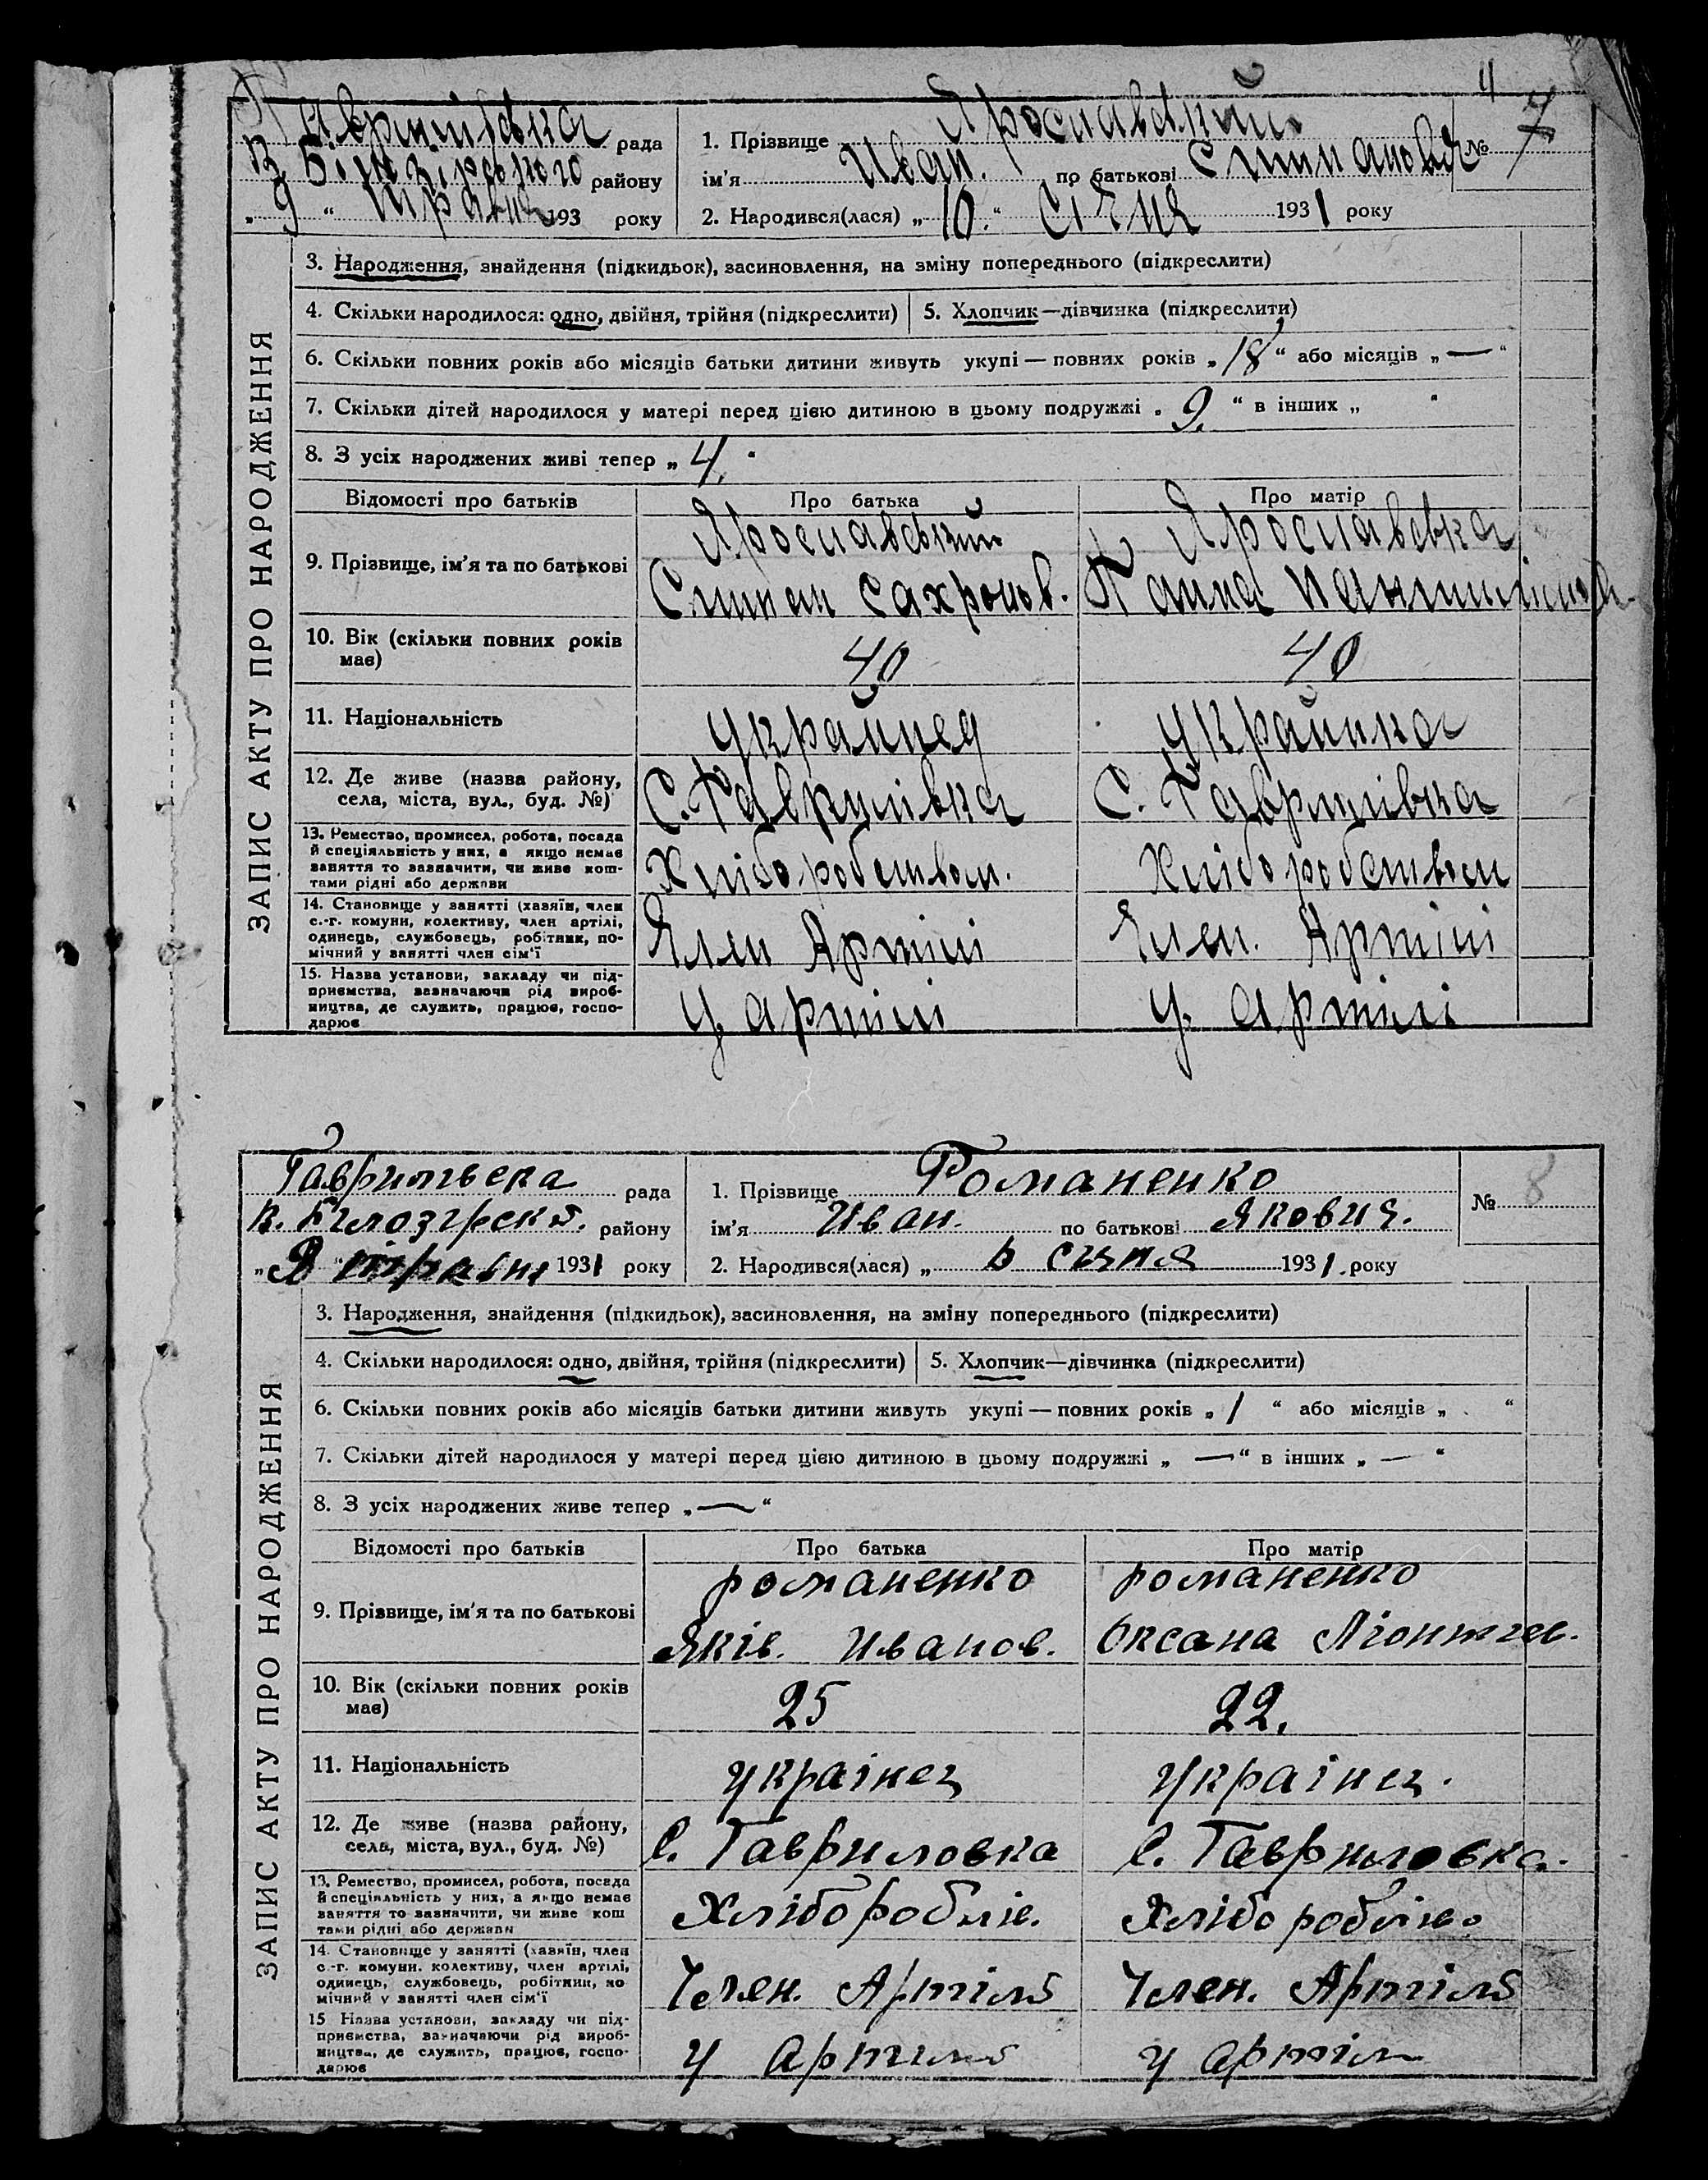 4
Гаврилівка рада
в. Білозірського району
„ 9 “ травня 193 року
1. Прізвище Ярославский
ім'я Иван. по батькові
№ 7
2. Народився(лася) „ 10. “ Січня 1931 року
ЗАПИС АКТУ ПРО НАРОДЖЕННЯ
3. Народження, знайдення (підкидьок), засиновлення, на зміну попереднього (підкреслити)
4. Скільки народилося: одно, двійня, трійня (підкреслити)
5. Хлопчик—дівчинка (підкреслити)
6. Скільки повних років або місяців батьки дитини живуть укупі — повних років „ 18 “ або місяців „ — “
7. Скільки дітей народилося у матері перед цією дитиною в цьому подружжі „ 9. “ в інших „ “
8. З усіх народжених живі тепер „ 4. “
Відомості про батьків
Про батька
Про матір
9. Прізвище, ім'я та по батькові
Ярославський
Ярославська
Сахронов.
Ганна
10. Вік (скільки повних років має)
40
40
11. Національність
Українец
Українка
12. Де живе (назва району,
села, міста, вул., буд. №)
С. Гаврилівка
С. Гаврилівка
13. Ремество, промисел, робота, посада
й спеціяльність у них, а якщо немає
заняття то зазначити, чи живе кош-
тами рідні або держави
Хліборобством.
Хліборобством
14. Становище у занятті (хазяїн, член
с.-г. комуни, колективу, член артілі,
одинець, службовець, робітник, по-
мічний у занятті член сім'ї
Член Артілі
Член. Артілі
15. Назва установи, закладу чи під-
приємства, зазначаючи рід вироб-
ництва, де служить, працює, госпо-
дарює
у артілі
у. артілі
Гаврильвека рада
в. Білозірськ. району
травня 1931 року
1. Прізвище Романенко
ім'я Иван. по батькові Якович.
№ 8
2. Народився(лася) „ сичня 1931. року
ЗАПИС АКТУ ПРО НАРОДЖЕННЯ
3. Народження, знайдення (підкидьок), засиновлення, на зміну попереднього (підкреслити)
4. Скільки народилося: одно, двійня, трійня (підкреслити)
5. Хлопчик—дівчинка (підкреслити)
6. Скільки повних років або місяців батьки дитини живуть укупі — повних років „ 1 “ або місяців „ “
7. Скільки дітей народилося у матері перед цією дитиною в цьому подружжі „ — “ в інших „ — “
8. З усіх народжених живе тепер „ — “
Відомості про батьків
Про батька
Про матір
9. Прізвище, ім'я та по батькові
романенко
романенко
Яків. Иванов.
Оксана Ліонтъев.
10. Вік (скільки повних років має)
25
22.
11. Національність
українец
україниц.
12. Де живе (назва району,
села, міста, вул., буд. №)
с. Гавриловка
с. Гавриловка.
13. Ремество, промисел, робота, посада
й спеціяльність у них, а якщо немає
заняття то зазначити, чи живе кош
тами рідні або держави
Хлібороблів.
Хлібороблів.
14. Становище у занятті (хазяїн, член
с.-г. комуни, колективу, член артілі,
одинець, службовець, робітник, по
мічний у занятті член сім'ї
Член. Артілі
Член. Артілі
15 Назва установи, закладу чи під-
приємства, зазначаючи рід вироб-
ництва, де служить, працює, госпо-
дарює
у артилі
у артілі